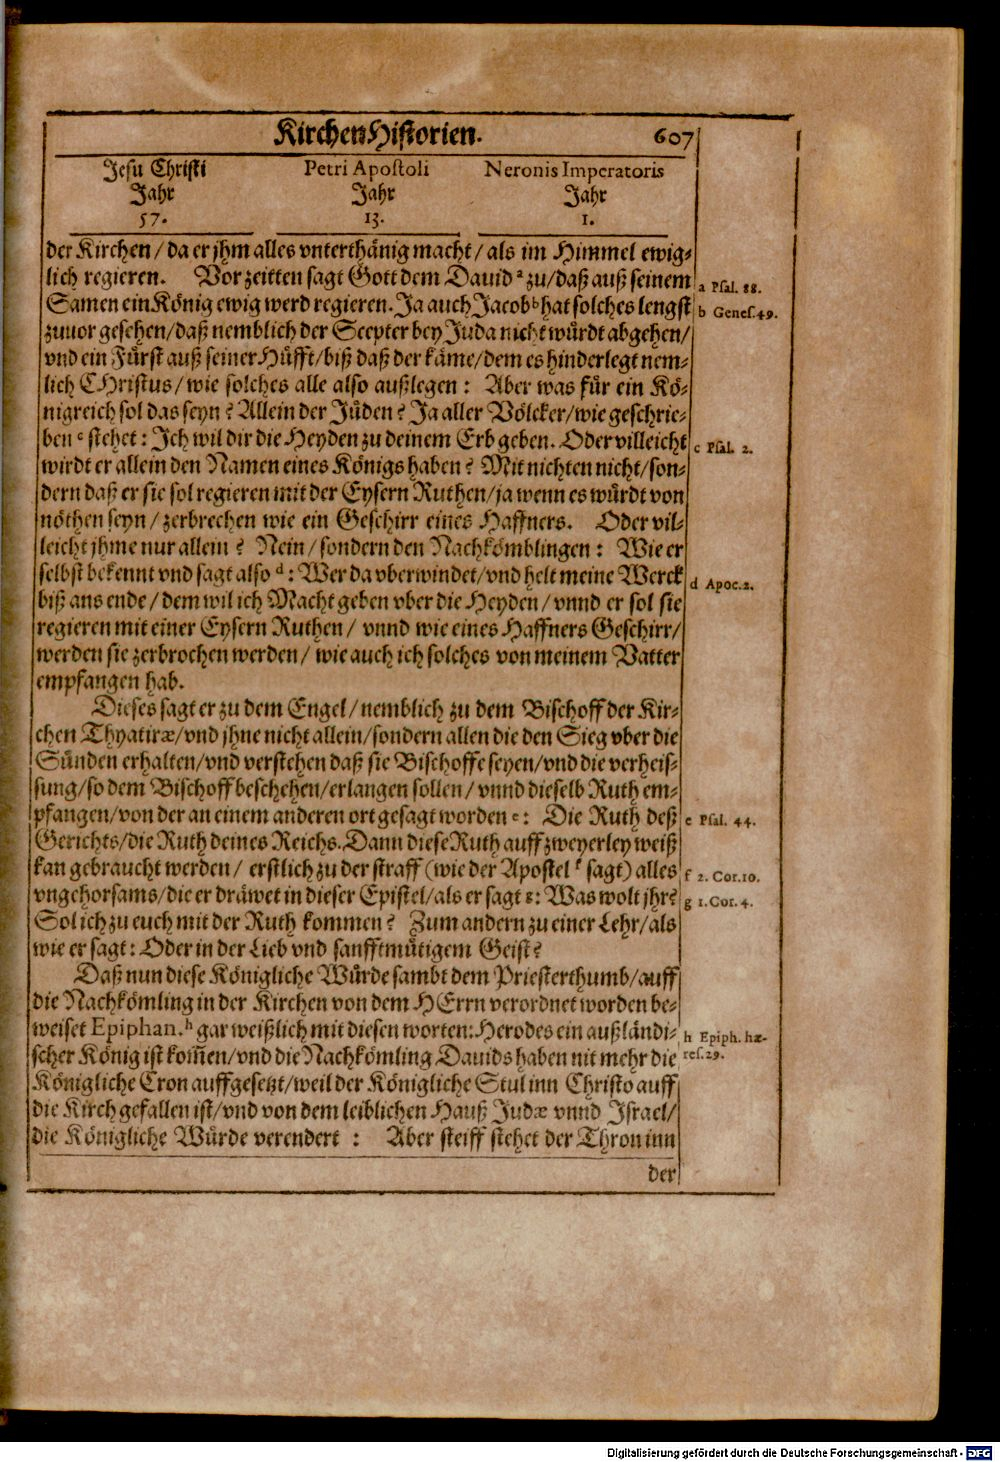 KirchenHistorien. 607
Jesu Christi Petri Apostoli Neronis Imperatoris
Jahr Jahr Jahr
57. 13. 1.
der Kirchen/ da er jhm alles vnterthänig macht/ als im Himmel ewig-
lich regieren. Vor zeitten sagt Gott dem Dauid a zu/ daß auß seinem
Samen ein König ewig werd regieren. Ja auch Jacob b hat solches lengst
zuuor gesehen/ daß nemblich der Scepter bey Juda nicht würdt abgehen/
vnd ein Fürst auß seiner Hüfft/ biß daß der käme/ dem es hinderlegt nem-
lich CHristus/ wie solches alle also außlegen: Aber was für ein Kö-
nigreich sol das seyn? Allein der Jüden? Ja aller Völcker/ wie geschrie-
ben c stehet: Ich wil dir die Heyden zu deinem Erb geben. Oder villeicht
wirdt er allein den Namen eines Königs haben? Mit nichten nicht/ son-
dern daß er sie sol regieren mit der Eysern Ruthen/ ja wenn es würdt von
nöthen seyn/ zerbrechen wie ein Geschirr eines Haffners. Oder vil-
leicht jhme nur allein? Nein/ sondern den Nachkömblingen: Wie er
selbst bekennt vnd sagt also d: Wer da vberwindet/ vnd helt meine Werck
biß ans ende/ dem wil ich Macht geben vber die Heyden/ vnnd er sol sie
regieren mit einer Eysern Ruthen/ vnnd wie eines Haffners Geschirr/
werden sie zerbrochen werden/ wie auch ich solches von meinem Vatter
empfangen hab.
Dieses sagt er zu dem Engel/ nemblich zu dem Bischoff der Kir-
chen Thyatiræ/ vnd jhne nicht allein/ sondern allen die den Sieg vber die
Sünden erhalten/ vnd verstehen daß sie Bischoffe seyen/ vnd die verheis-
sung/ so dem Bischoff beschehen/ erlangen sollen/ vnnd dieselb Ruth em-
pfangen/ von der an einem anderen ort gesagt worden e: Die Ruth deß
Gerichts/ die Ruth deines Reichs. Dann diese Ruth auff zweyerley weiß
kan gebraucht werden/ erstlich zu der straff (wie der Apostel f sagt) alles
vngehorsams/ die er dräwet in dieser Epistel/ als er sagt g: Was wolt jhr?
Sol ich zu euch mit der Ruth kommen? Zum andern zu einer Lehr/ als
wie er sagt: Oder in der Lieb vnd sanfftmütigem Geist?
Daß nun diese Königliche Würde sambt dem Priesterthumb/ auff
die Nachkömling in der Kirchen von dem HErrn verordnet worden be-
weiset Epiphan. h gar weißlich mit diesen worten: Herodes ein außländi-
scher König ist kom̄en/ vnd die Nachkömling Dauids haben nit mehr die
Königliche Cron auffgesetzt/ weil der Königliche Stul inn Christo auff
die Kirch gefallen ist/ vnd von dem leiblichen Hauß Judæ vnnd Israel/
die Königliche Würde verendert : Aber steiff stehet der Thron inn
der
a Psal. 88.
b Genes. 49.
c Psal. 2.
d Apoc. 2.
e Psal. 44.
f 2. Cor. 10.
g 1. Cor. 4.
h Epiph. hæ-
res. 29.
Digitalisierung gefördert durch die Deutsche Forschungsgemeinschaft - DFG